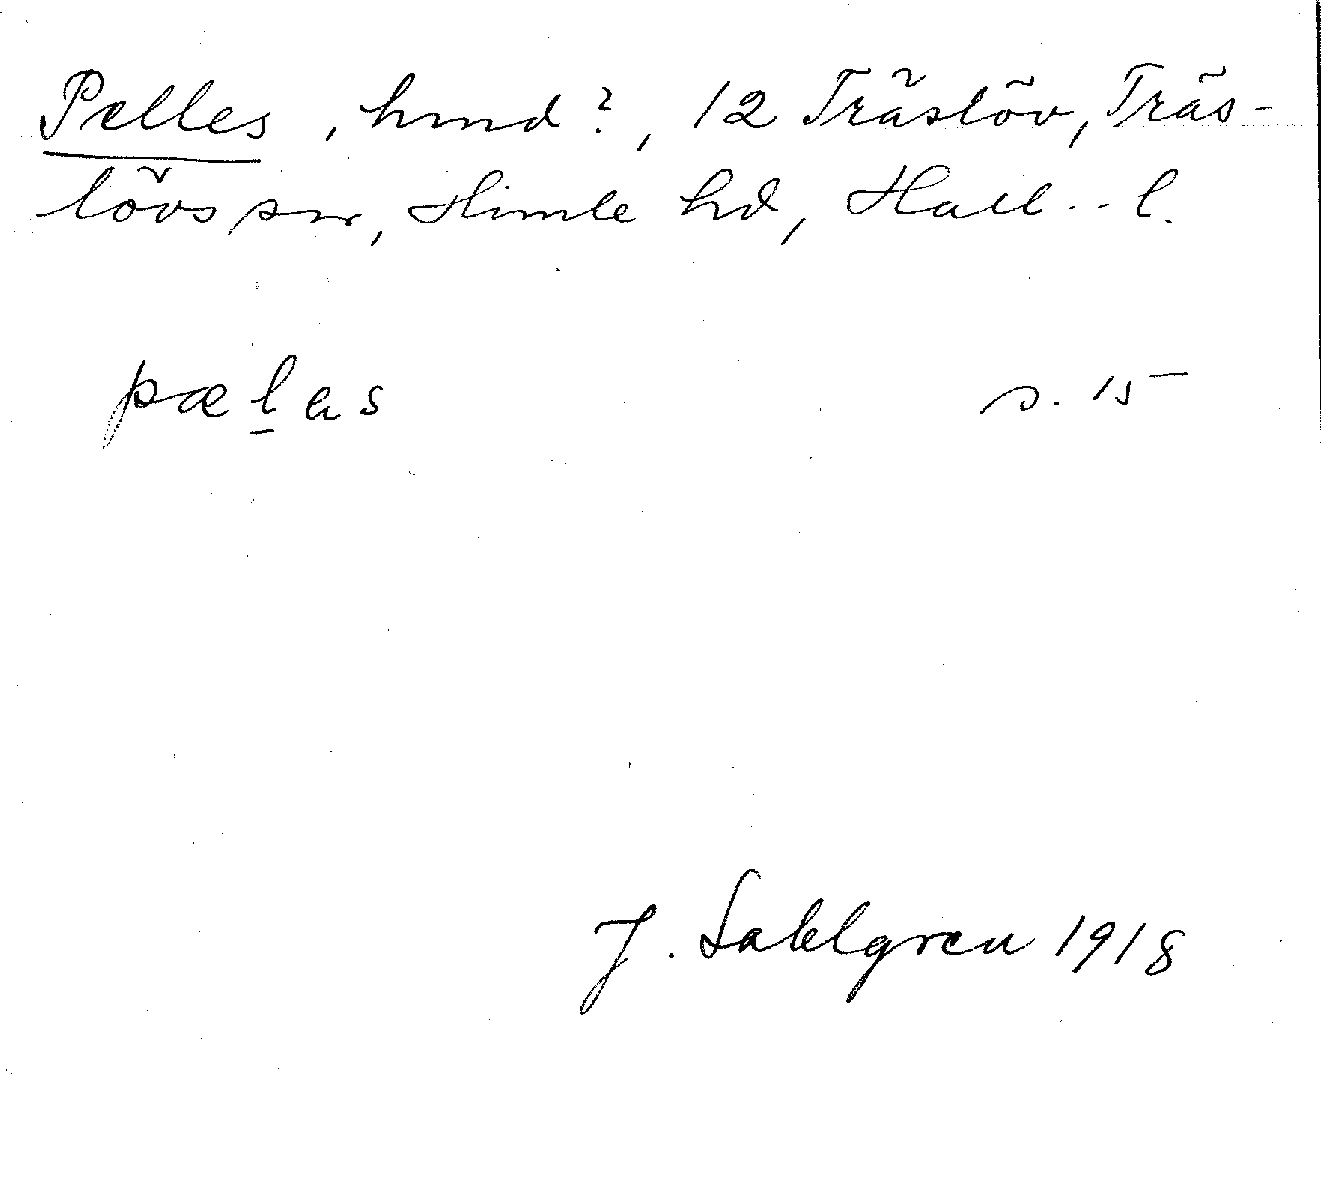 Pelles, hmd?, 12 Träslöv, Träs-
lövs sn, Himle hd, Hall. l.
pæl̲as s. 15
J. Sahlgren 1918